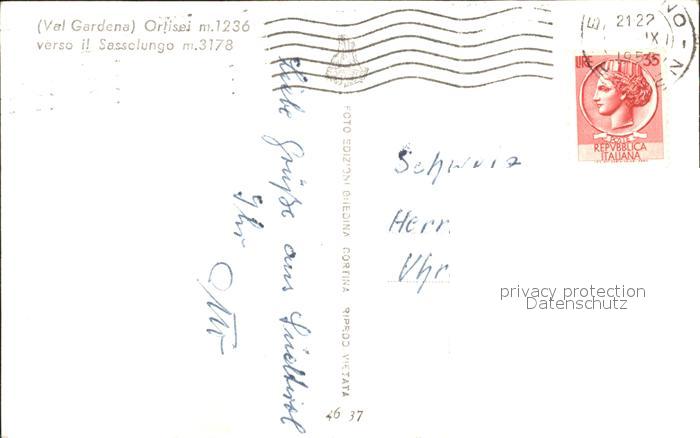 (Val Gardena) Ortisei m.1236
verso il Sassolungo m.3178
21-22
IX
LIRE 35
POSTE
REPVBBLICA
ITALIANA
Liebe Grüße aus Südtirol
Ihr Otto
FOTO EDIZIONI GHEDINA CORTINA RIPROD VIETATA
Schweiz
Herr
Uhr.
privacy protection
Datenschutz
46 37